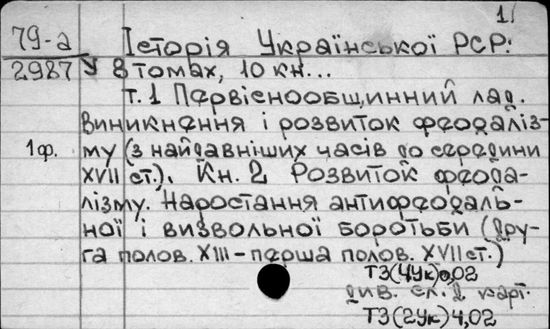 1
79-а Історія Української РСР:
2987 У 8 томах, 10 кн...
т. 1 Первіснообщинний лад.
Виникнення і розвиток феодаліз-
1ф. му (з найдавніших часів до середини
XVII ст.). Кн. 2 Розвиток феода-
лізму. Наростання антифеодаль-
ної і визвольної боротьби (Дру-
га полов. XIII – перша полов. XVII ст.)
ТЗ(4Ук)0,02
див. сл. 2 карт.
ТЗ(2Ук)4,02